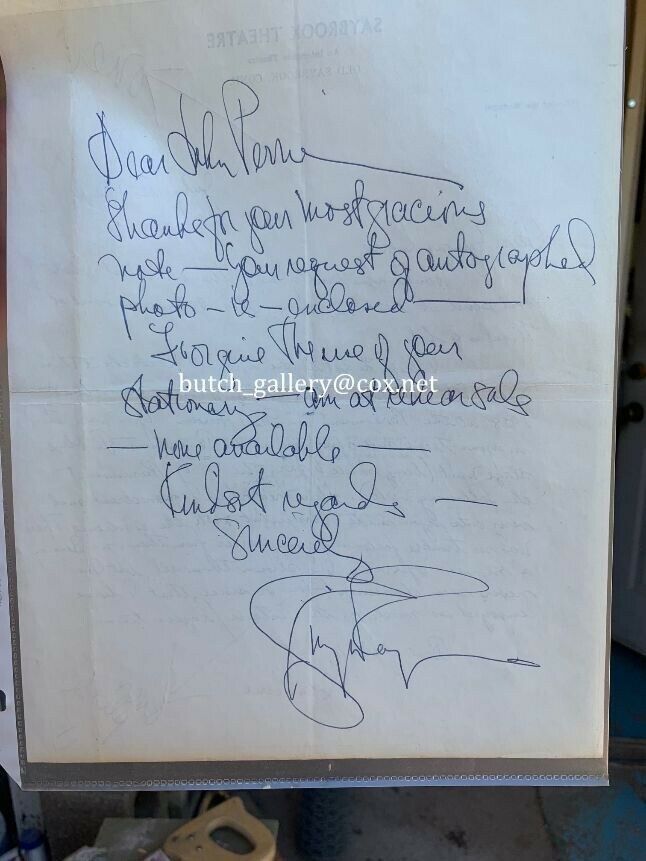 SAYBROOK THEATRE
OLD SAYBROOK, CONN
Dear John
Thanks for your most gracious
note — your request of autographed
photo — is — enclosed —
Forgive the use of your
butch_gallery@cox.net
stationary — am at rehearsals
— none available —
Kindest regards —
Sincerely